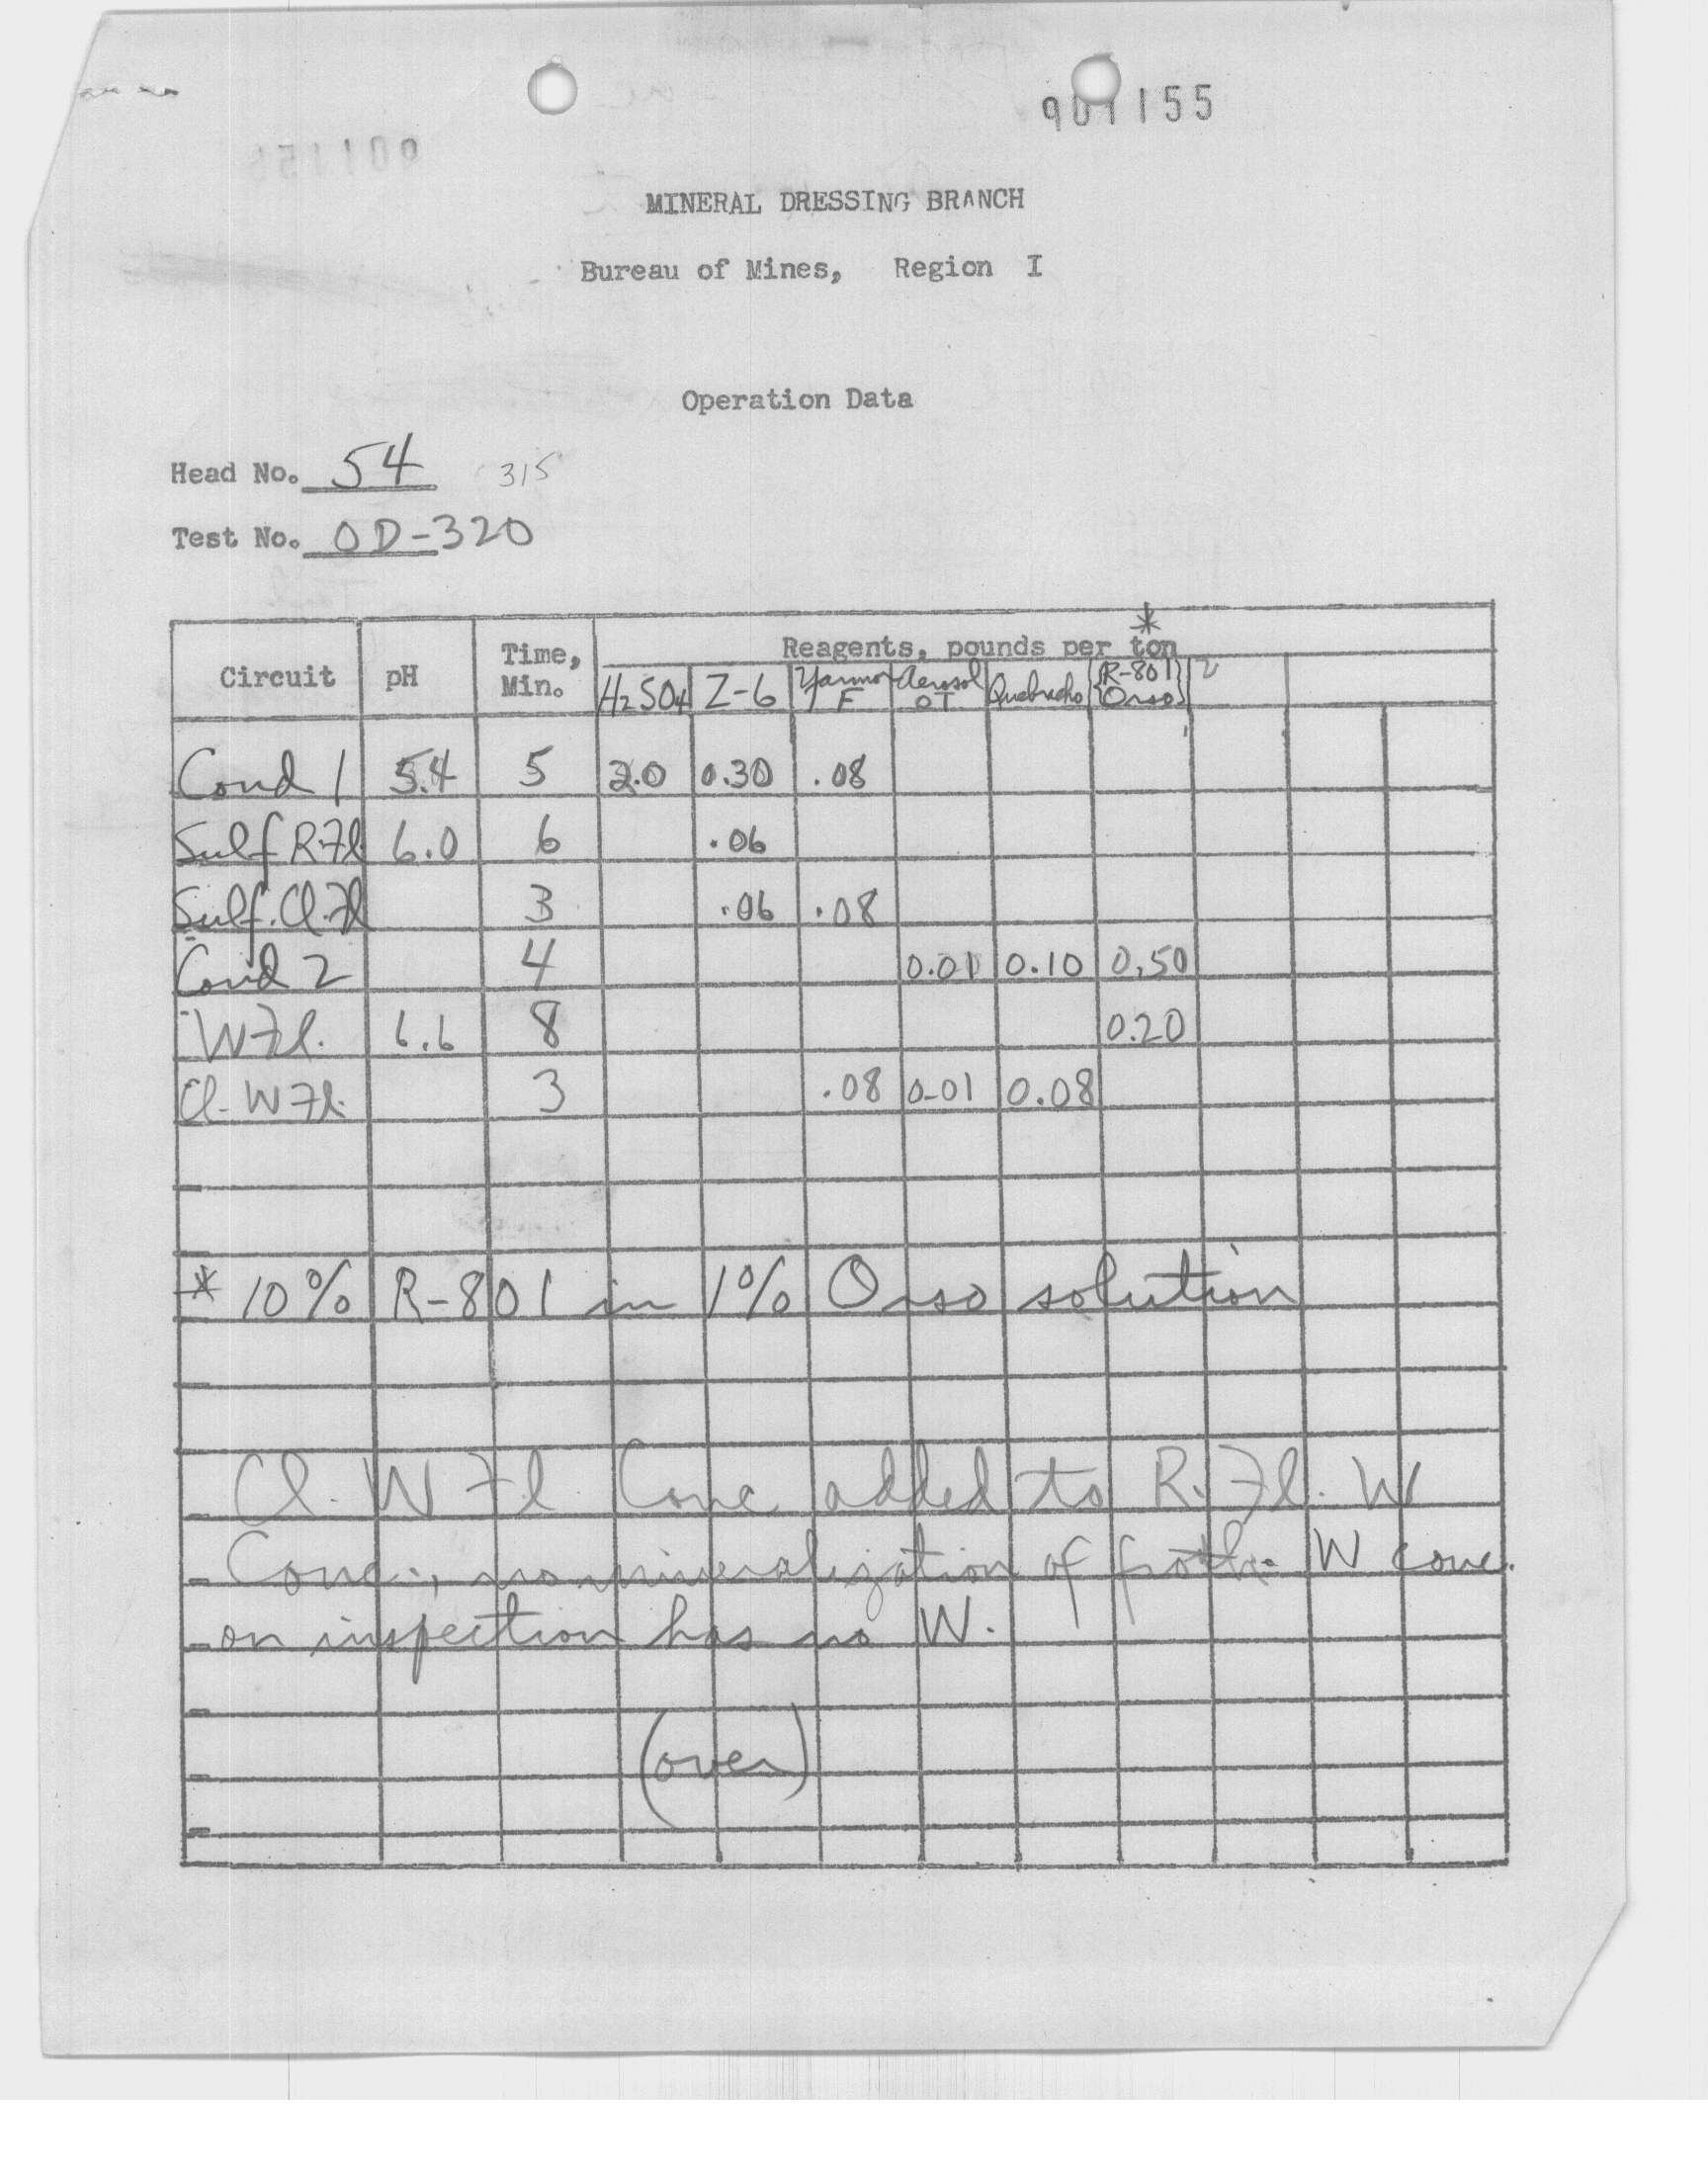 901155
MINERAL DRESSING BRANCH
Bureau of Mines, Region I
Operation Data
Head No. 54 315
Test No. OD-320
*
Circuit pH Time, Min. Reagents, pounds per ton
H2SO4 Z-6 Yarmor F Aerosol OT Quebracho {R-801} {Orso}
Cond 1 5.4 5 2.0 0.30 .08
Sulf R.Fl 6.0 6 .06
Sulf. Cl. Fl 3 .06 .08
Cond 2 4 0.01 0.10 0.50
W Fl. 6.6 8 0.20
Cl. W Fl. 3 .08 0.01 0.08
* 10% R-801 in 1% Orso solution
Cl. W Fl. Conc added to R. Fl. W
Conc., no mineralization of froth. W conc.
on inspection has no W.
(over)